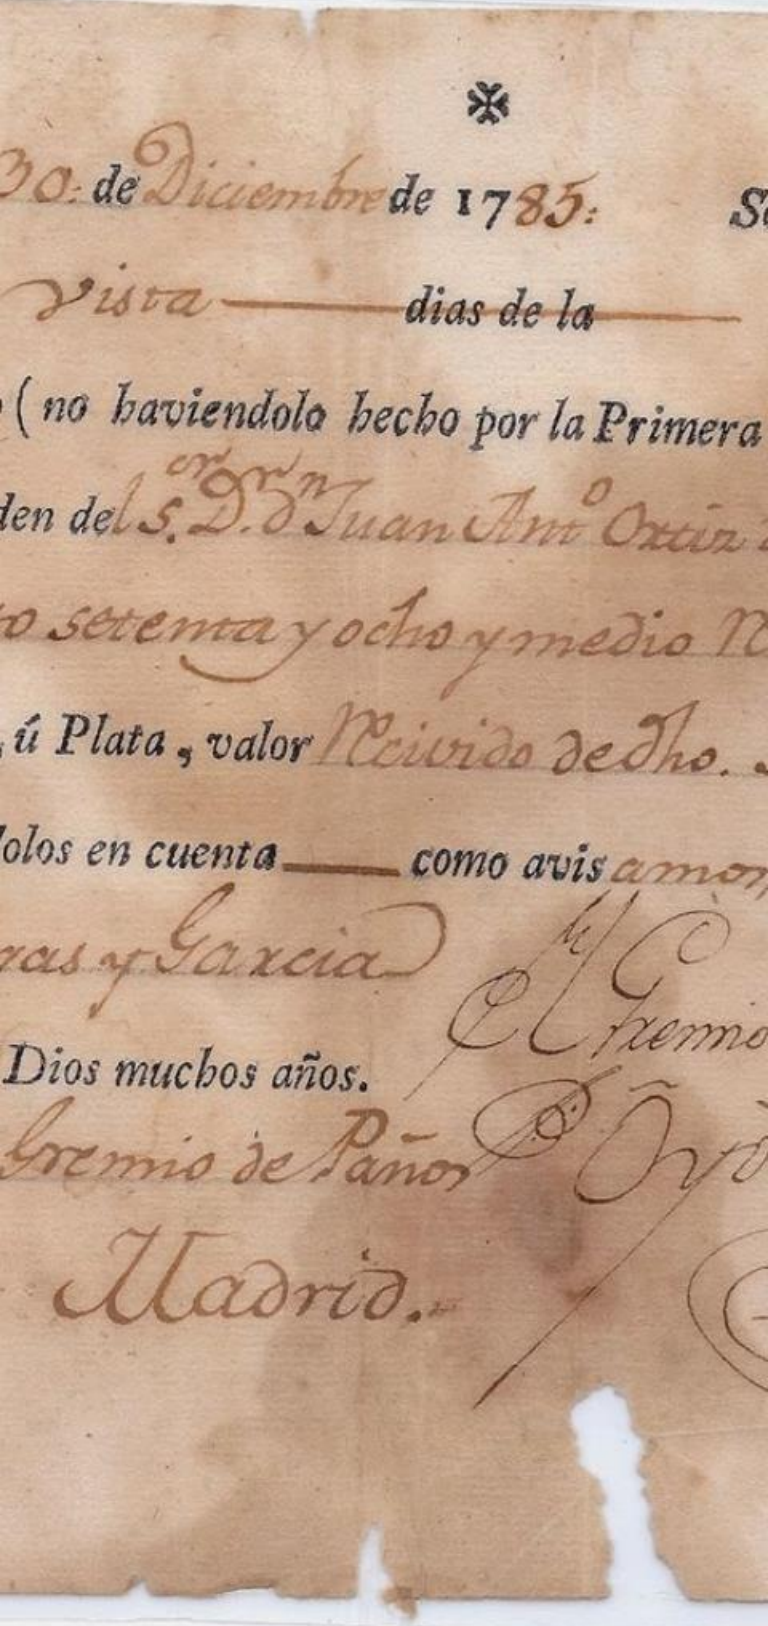 30: de Diciembre de 1785:
vista dias de la
( no haviendolo hecho por la Primera
den del S.or D.r d.n Juan Ant.o Ortiz
to setenta y ocho y medio R
, ú Plata, valor Recivido de dho.
dolos en cuenta como avisamos,
ras y Garcia
El Gremio
Dios muchos años.
Gremio de Paños
Madrid.